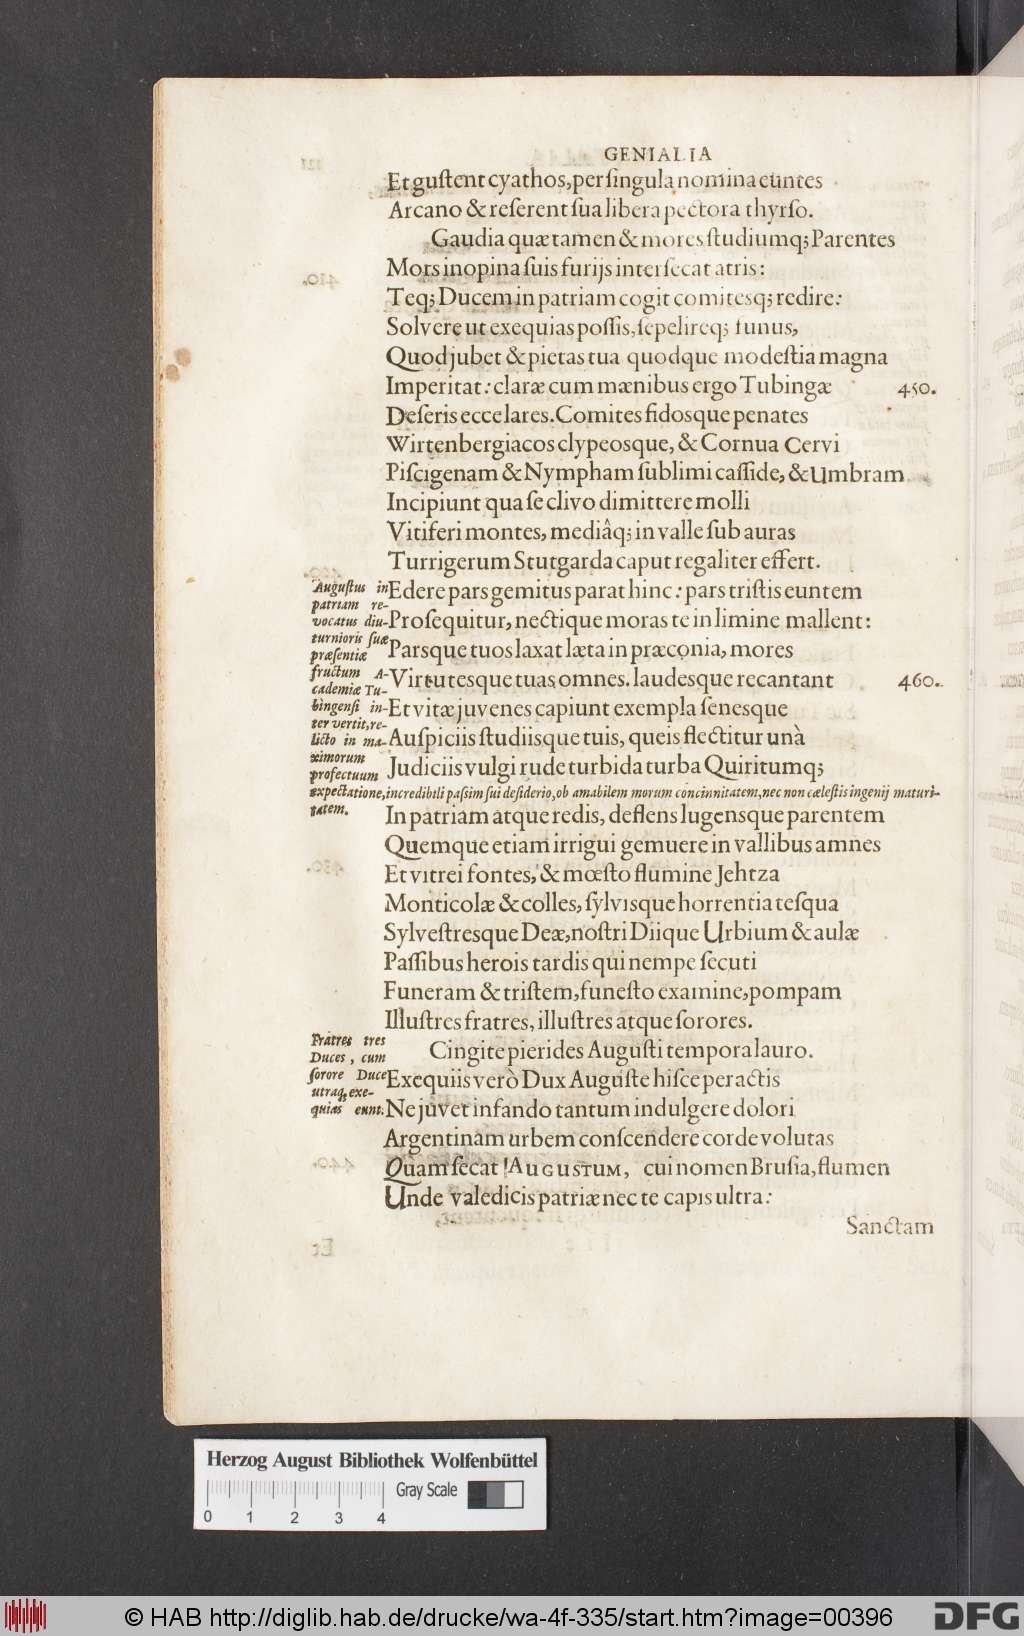 GENIALIA
Et guſtent cyathos, per ſingula nomina euntes
Arcano & reſerent ſua libera pectora thyrſo.
Gaudia quæ tamen & mores ſtudiumq; Parentes
Mors inopina ſuis furijs interſecat atris:
Teq; Ducem in patriam cogit comitesq; redire:
Solvere ut exequias poſſis, ſepelireq; funus,
Quod jubet & pietas tua quodque modeſtia magna
Imperitat: claræ cum mænibus ergo Tubingæ 450.
Deſeris ecce lares. Comites fidosque penates
Wirtenbergiacos clypeosque, & Cornua Cervi
Piſcigenam & Nympham ſublimi caſſide, & Umbram
Incipiunt qua ſe clivo dimittere molli
Vitiferi montes, mediâq; in valle ſub auras
Turrigerum Stutgarda caput regaliter effert.
Edere pars gemitus parat hinc: pars triſtis euntem
Proſequitur, nectique moras te in limine mallent:
Parsque tuos laxat læta in præconia, mores
Virtutesque tuas omnes. laudesque recantant 460.
Et vitæ juvenes capiunt exempla ſenesque
Auſpiciis ſtudiisque tuis, queis flectitur unà
Judiciis vulgi rude turbida turba Quiritumq;
Auguſtus in
patriam re-
vocatus diu-
turnioris ſuæ
præſentiæ
fructum A-
cademiæ Tu-
bingenſi in-
tervertit, re-
licto in ma-
ximorum
profectuum
expectatione, incredibili paſſim ſui deſiderio, ob amabilem morum concinnitatem, nec non cæleſtis ingenij maturi-
tatem.
In patriam atque redis, deflens lugensque parentem
Quemque etiam irrigui gemuere in vallibus amnes
Et vitrei fontes, & mœſto flumine Jehtza
Monticolæ & colles, ſylvisque horrentia teſqua
Sylveſtresque Deæ, noſtri Diique Urbium & aulæ
Paſſibus herois tardis qui nempe ſecuti
Funeram & triſtem, funeſto examine, pompam
Illuſtres fratres, illuſtres atque ſorores.
Cingite pierides Auguſti tempora lauro.
Exequiis verò Dux Auguſte hiſce peractis
Ne juvet infando tantum indulgere dolori
Argentinam urbem conſcendere corde volutas
Quam ſecat AUGUSTUM, cui nomen Bruſia, flumen
Unde valedicis patriæ nec te capis ultra:
Fratres tres
Duces, cum
ſorore Duce
utraq; exe-
quias eunt.
Sanctam
Herzog August Bibliothek Wolfenbüttel
Gray Scale
0 1 2 3 4
© HAB http://diglib.hab.de/drucke/wa-4f-335/start.htm?image=00396
DFG